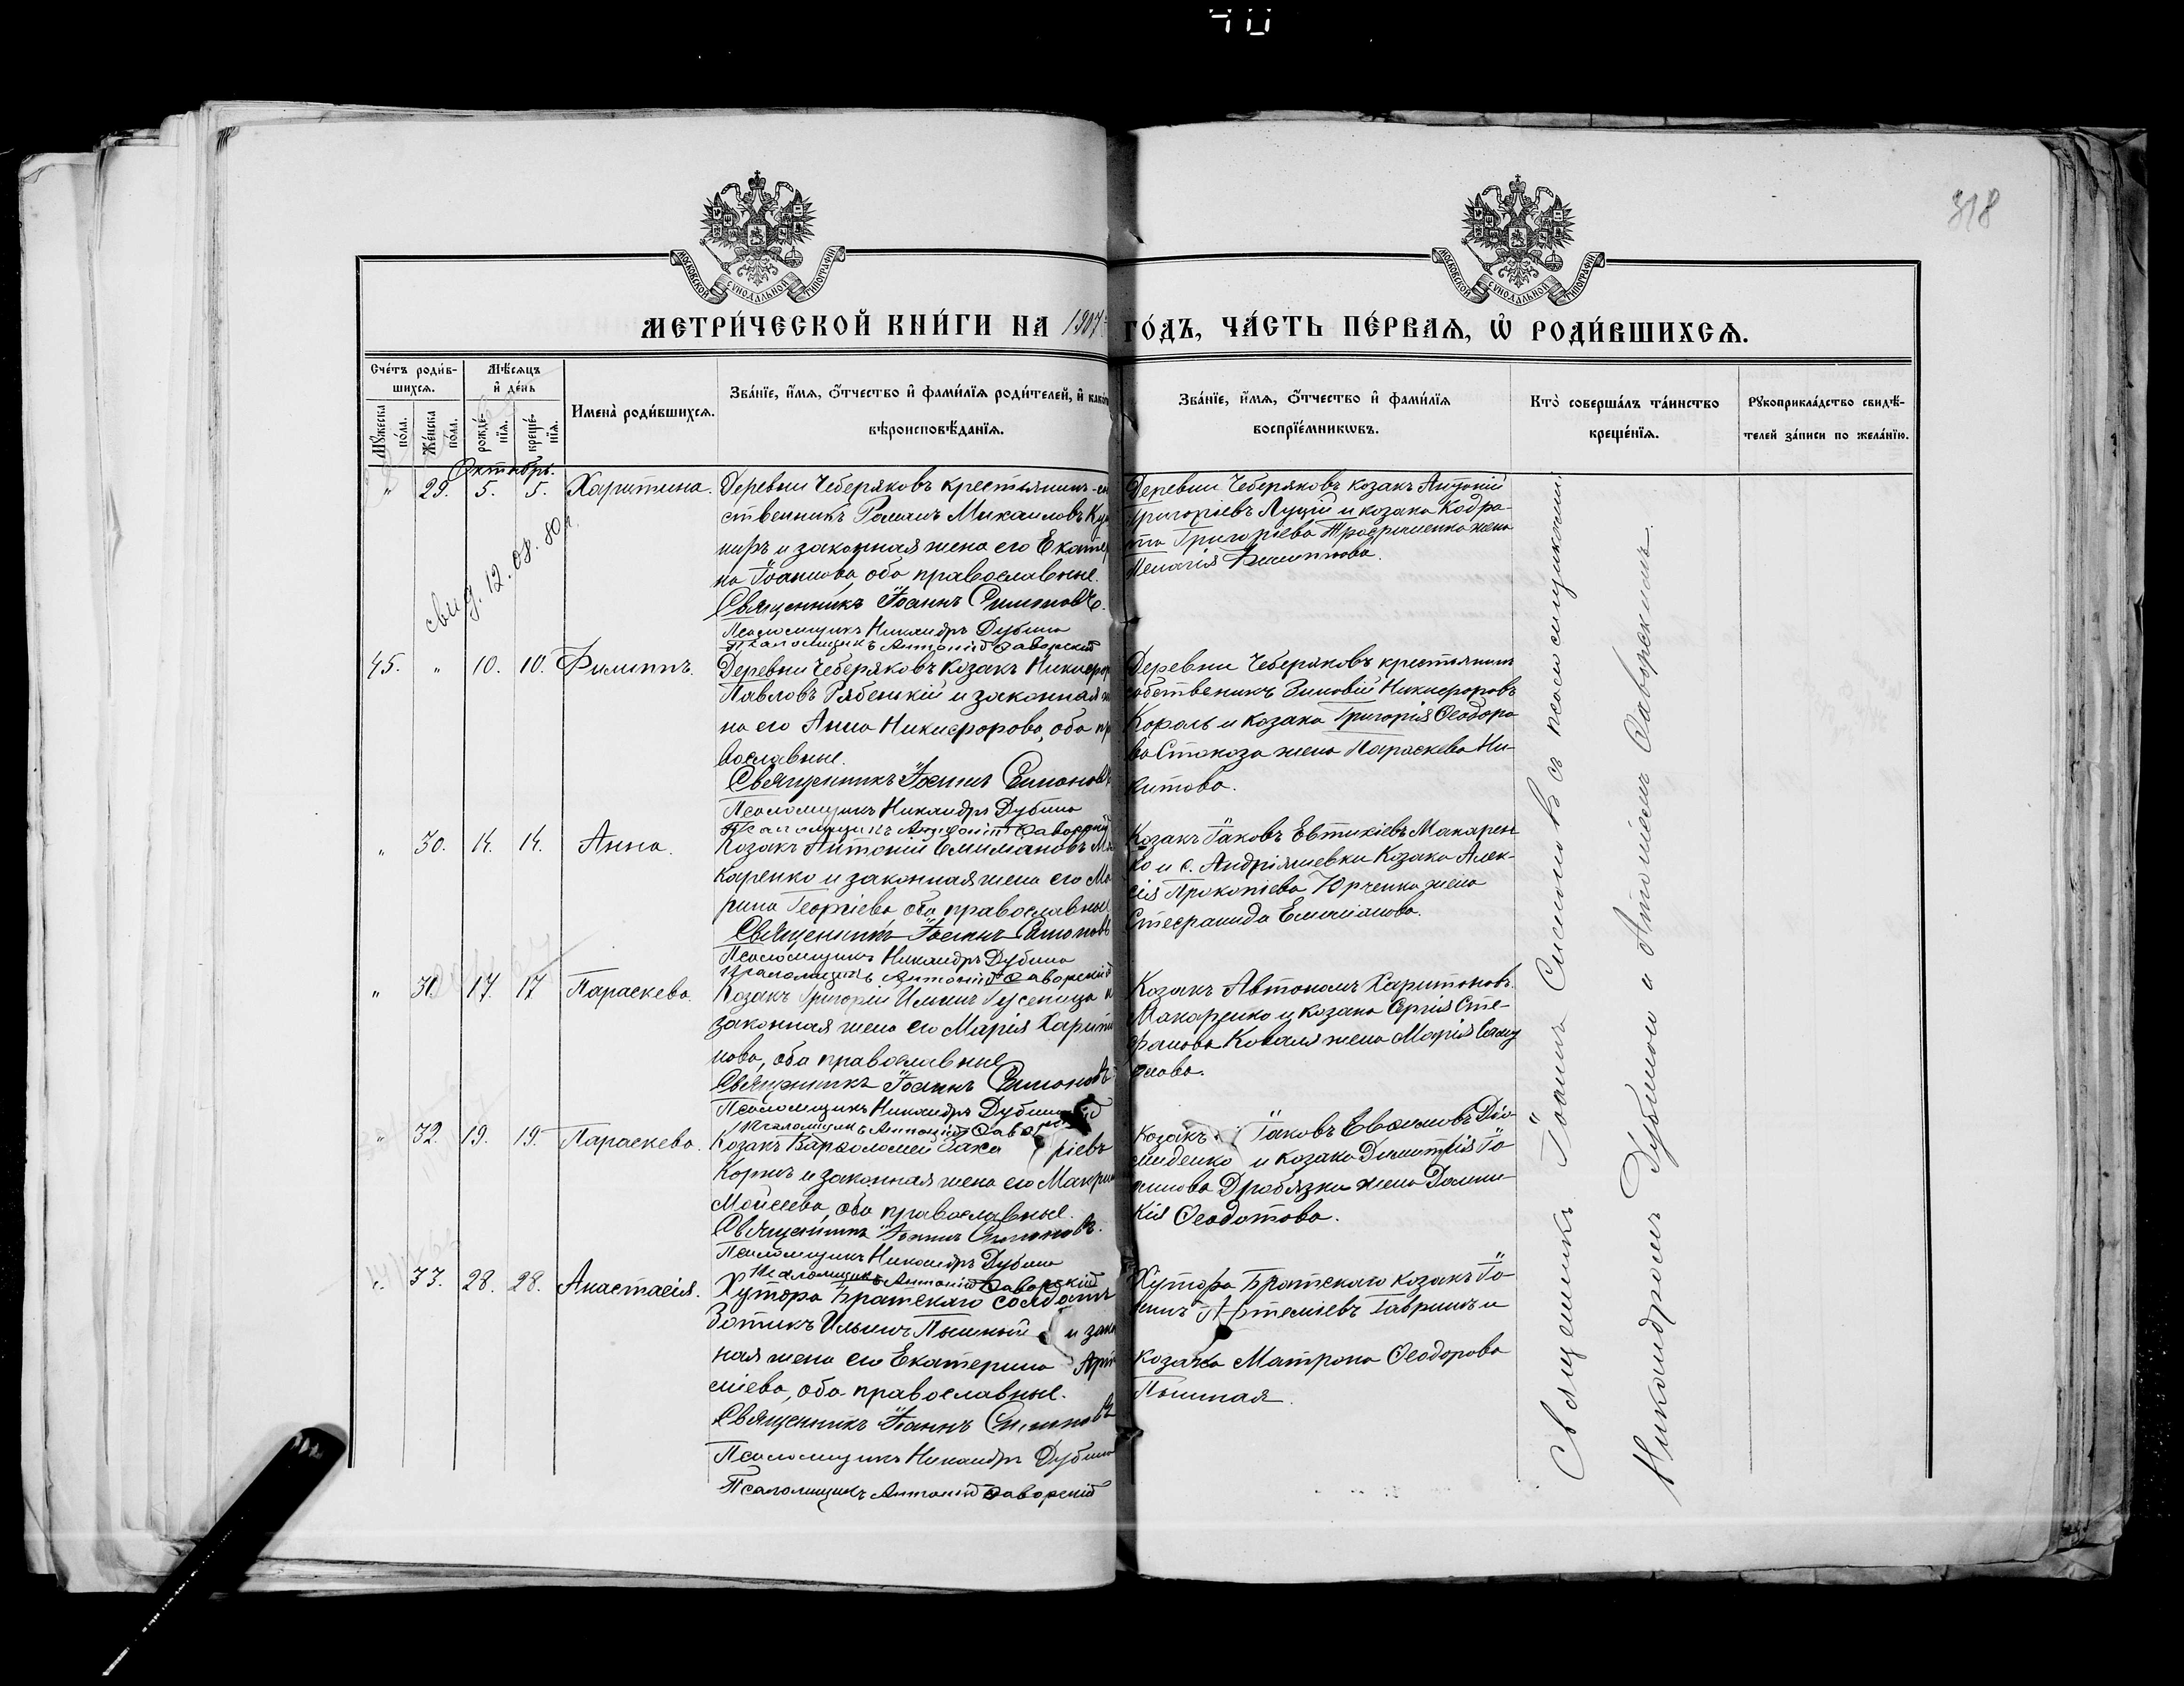 318
МОСКОВСКОЙ СУНОДАЛЬНОЙ ТИПОГРАФІИ
МОСКОВСКОЙ СУНОДАЛЬНОЙ ТИПОГРАФІИ
МЕТРИ́ЧЕСКОЙ КНИ́ГИ НА 1907
ГО́ДЪ, ЧА́СТЬ ПЕ́РВАѦ, Ѡ҆ РОДИ́ВШИХСѦ.
Сче́тъ роди́в-
шихся.
Мѣ́сяцъ
и҆ де́нь
Мꙋ́жеска по́ла.
Же́нска по́ла.
рожде́-
нїя.
креще́-
нїя.
Имена̀ роди́вшихся.
Зва́нїе, и҆́мя, ѻ҆́тчество и҆ фами́лїя роди́телей, и҆ како́
вѣроисповѣ́данїя.
Зва́нїе, и҆́мя, ѻ҆́тчество и҆ фами́лїя
воспрїе́мникѡвъ.
Кто̀ соверша́лъ та́инство
креще́нїя.
Рꙋкоприкла́дство свидѣ́-
телей за́писи по жела́нїю.
Октябрь.
" 29. 5. 5. Харитина.
свид. 12. 08. 80 г.
Деревни Чеберяковъ крестьянинъ-со
ственникъ Романъ Михаиловъ Ку
ниръ и законная жена его Екатер
на Іоаннова, оба православные.
Священникъ Іоаннъ Симоновъ.
Псаломщикъ Никандръ Дубина
Псаломщикъ Антоній Яворскій
Деревни Чеберяковъ козакъ Антоній
Григоріевъ Луцій и козака Кодра-
та Григоріева Трофименка жена
Пелагія Филиппова.
45. " 10. 10. Филиппъ.
Деревни Чеберяковъ козакъ Никифор
Павловъ Рябенькій и законная ж
на его Анна Никифорова, оба пр
вославные.
Священникъ Іоаннъ Симоновъ
Псаломщикъ Никандръ Дубина
Псаломщикъ Антоній Яворскій
Деревни Чеберяковъ крестьянинъ
собственникъ Зиновій Никифоровъ
Король и козака Григорія Ѳеодоро
ва Стокоза жена Параскева Ни-
китова.
" 30. 14. 14. Анна.
Козакъ Антоній Емиліановъ Ма
каренко и законная жена его Ма
рина Георгіева, оба православные
Священникъ Іоаннъ Симоновъ
Псаломщикъ Никандръ Дубина
Псаломщикъ Антоній Яворскій
Козакъ Іаковъ Евтихіевъ Макарен
ко и с. Андріяшевки козака Алек-
сія Прокопіева Юрченка жена
Стефанида Емиліанова.
" 31. 17. 17 Параскева.
Козакъ Григорій Ильинъ Гусеница и
законная жена его Марія Харито
нова, оба православные
Священникъ Іоаннъ Симоновъ
Псаломщикъ Никандръ Дубина
Псаломщикъ Антоній Яворскій
Козакъ Автономъ Харитоновъ
Макаренко и козака Сергія Сте-
фанова Коваля жена Марія Саму
илова.
" 32. 19. 19. Параскева.
Козакъ Варѳоломей Заха ріевъ
Коржъ и законная жена его Макрин
Моисеева, оба православные.
Священникъ Іоаннъ Симоновъ.
Псаломщикъ Никандръ Дубина
Псаломщикъ Антоній Яворскій
Козакъ Іаковъ Евѳимовъ Діо-
миденко и козака Димитрія Іо-
аннова Дробязки жена Домни-
кія Ѳеодотова.
" 33. 28. 28. Анастасія.
Хутора Братскаго солдатъ
Зотикъ Ильинъ Пышный и зако
ная жена его Екатерина Арте
міева, оба православные.
Священникъ Іоаннъ Симоновъ
Псаломщикъ Никандръ Дубина
Псаломщикъ Антоній Яворскій
Хутора Братскаго козакъ Іо-
аннъ Артеміевъ Гавришъ и
козачка Матрона Ѳеодорова
Пышная.
Священникъ Іоаннъ Симоновъ съ псаломщиками:
Никандромъ Дубиною и Антоніемъ Яворскимъ.